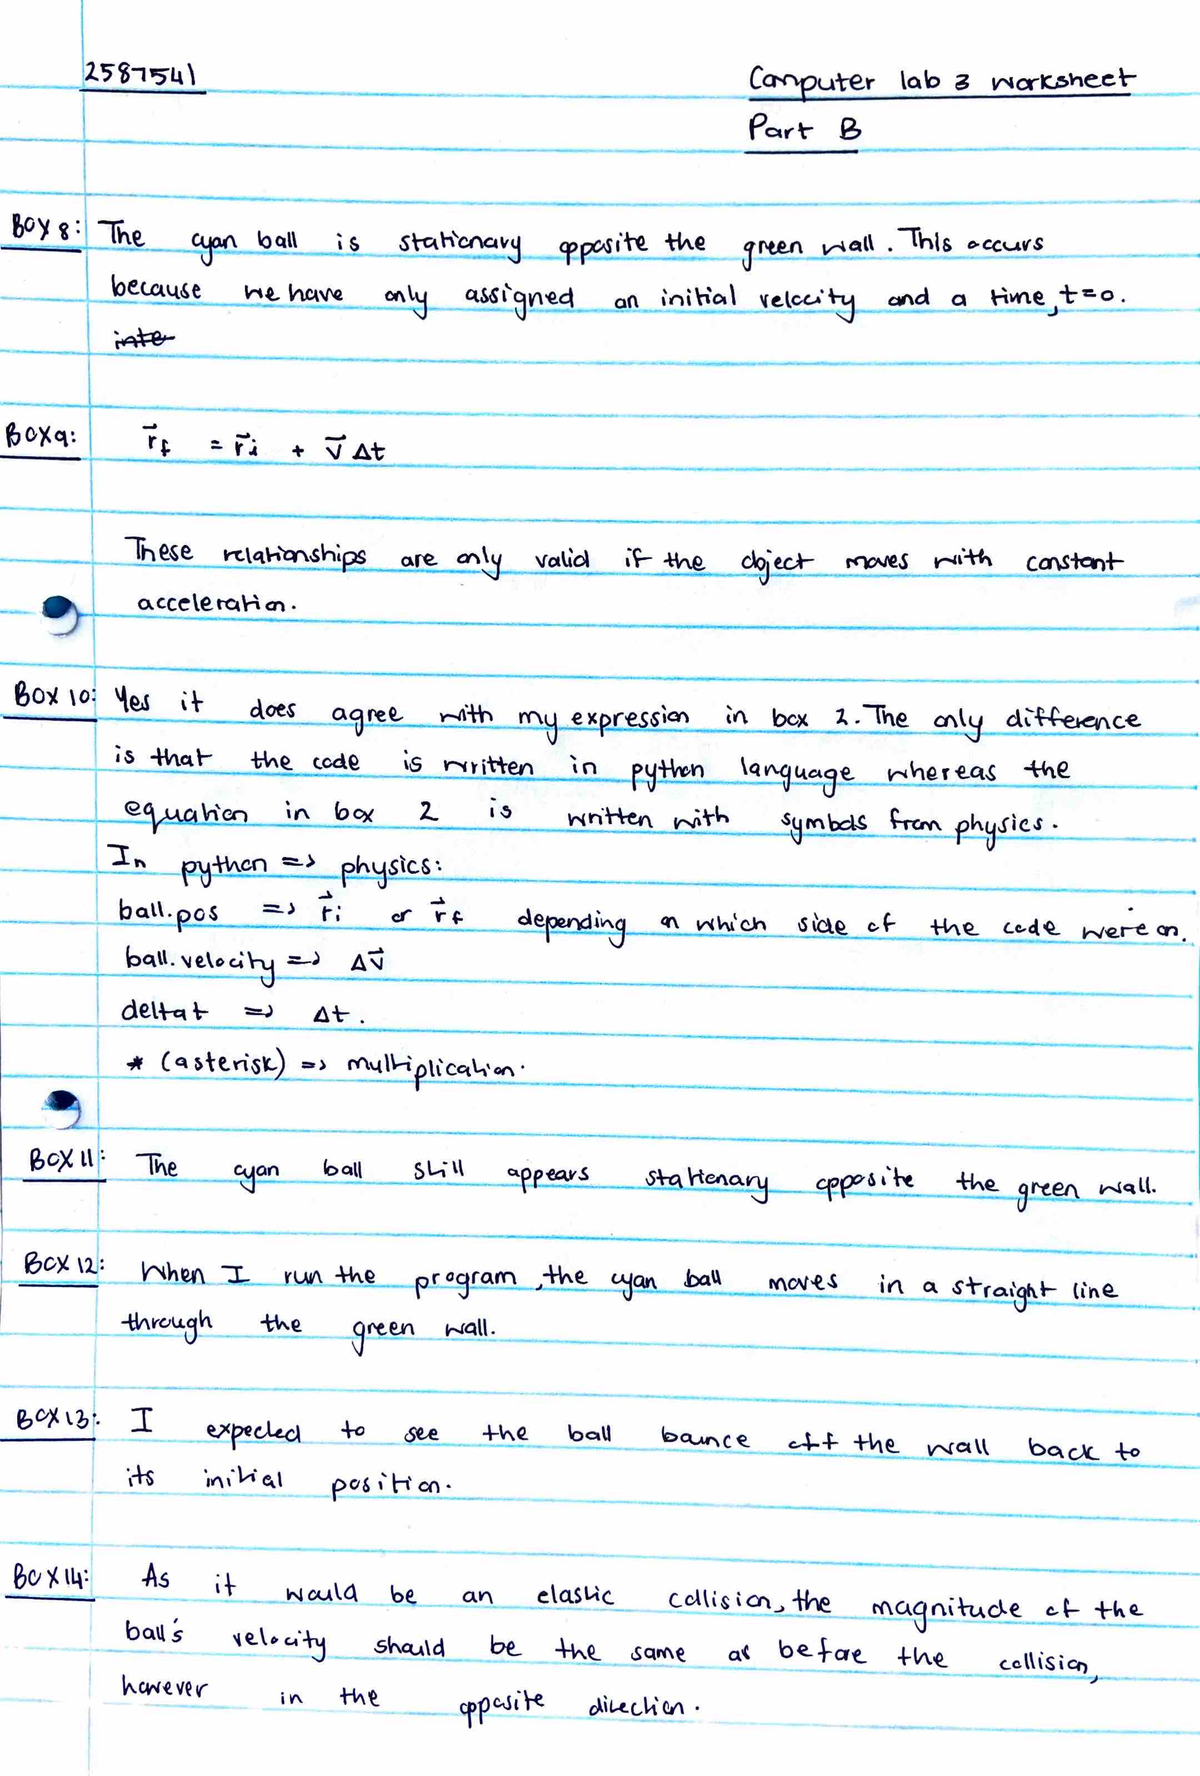 2587541
Computer lab 3 worksheet
Part B
BOX 8: The cyan ball is stationary opposite the green wall. This occurs
because we have only assigned an initial velocity and a time, t=0.
inte
BOX 9: r⃗f = r⃗i + v⃗ Δt
These relationships are only valid if the object moves with constant
acceleration.
BOX 10: Yes it does agree with my expression in box 2. The only difference
is that the code is written in python language whereas the
equation in box 2 is written with symbols from physics.
In python => physics:
ball.pos => r⃗i or r⃗f depending on which side of the code we're on.
ball.velocity => Δv⃗
deltat => Δt.
* (asterisk) => multiplication.
BOX 11: The cyan ball still appears stationary opposite the green wall.
BOX 12: When I run the program, the cyan ball moves in a straight line
through the green wall.
BOX 13: I expected to see the ball bounce off the wall back to
its initial position.
BOX 14: As it would be an elastic collision, the magnitude of the
ball's velocity should be the same as before the collision,
however in the opposite direction.